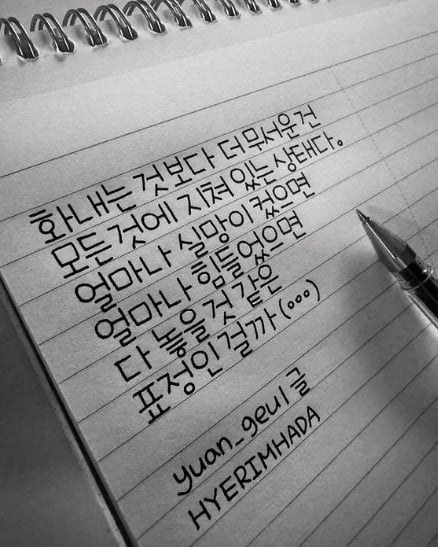 화내는 것보다 더 무서운건
모든 것에 지쳐 있는 상태다。
얼마나 실망이 컸으면
얼마나 힘들었으면
다 놓을것 같은
표정인 걸까(...)
yuan_geul 글
HYERIMHADA